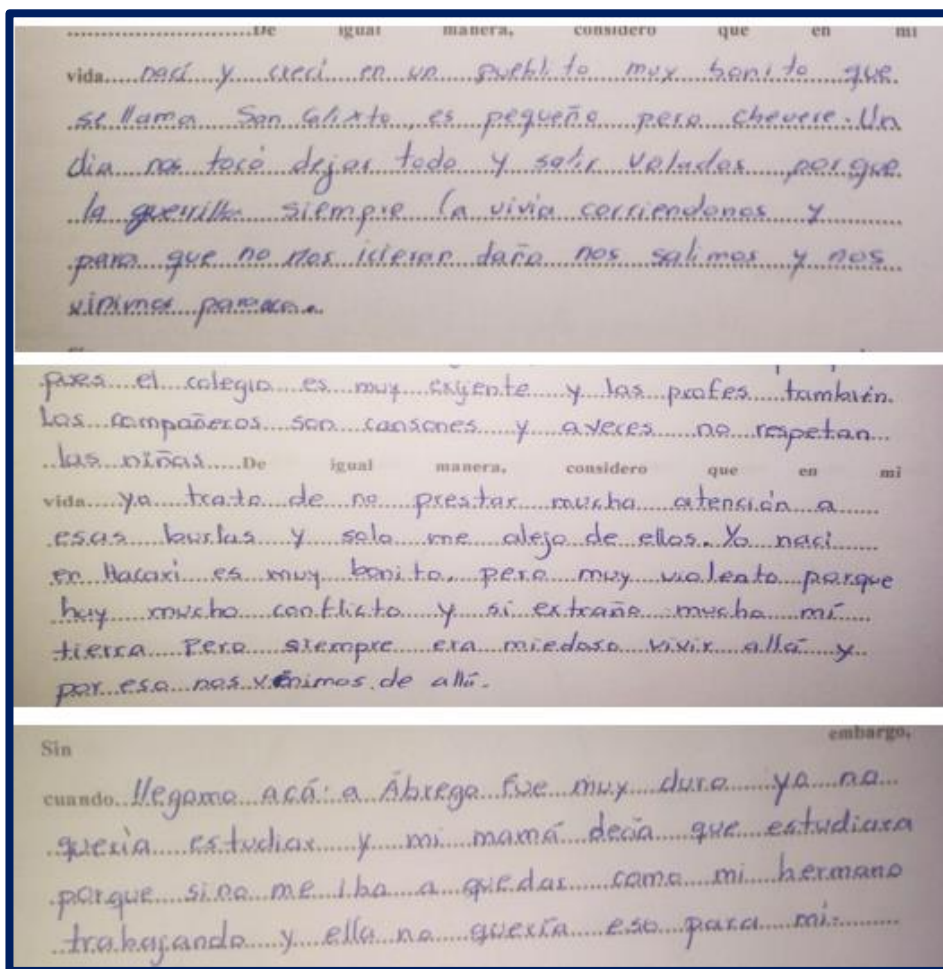 De igual manera, considero que en mi
vida naci y creci en un pueblito muy bonito que
se llama San Calixto, es pequeño pero chevere. Un
dia nos tocó dejar todo y salir volados porque
la guerrilla siempre la vivia corriendonos y
para que no nos icieran daño nos salimos y nos
vinimos paraca.
pues el colegio es muy exijente y las profes también.
Los compañeros son cansones y aveces no respetan
las niñas De igual manera, considero que en mi
vida yo trato de no prestar mucha atención a
esas burlas y solo me alejo de ellos. Yo naci
en Hacari es muy bonito, pero muy violento porque
hay mucho conflicto y si extraño mucho mí
tierra Pero siempre era miedoso vivir allá y
por eso nos vénimos de allá.
Sin embargo,
cuando llegamo acá a Ábrego fue muy duro yo no
queria estudiar y mi mamá decia que estudiara
porque sino me iba a quedar como mi hermano
trabajando y ella no quería eso para mi.